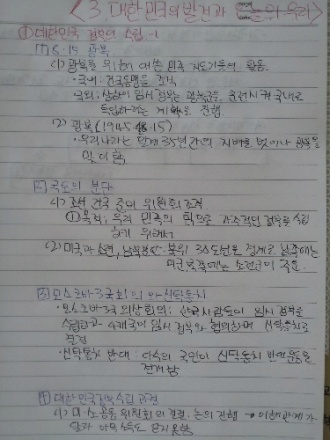 <3. 대한민국의 발전과 오늘의 우리>
① 대한민국 정부의 수립 -1
1 8·15 광복
(1) 광복을 위해 애쓴 민족 지도자들의 활동
·국내: 건국동맹을 조직
·국외: 상하이 임시 정부는 광복군을 훈련시켜 국내로
진입하려는 계획을 진행
(2) 광복 (1945. 8. 15)
·우리나라는 일제 35년간의 지배를 벗어나 광복을
맞이함
2 국토의 분단
(1) 조선 건국 준비 위원회 조직
① 목적: 우리 민족의 힘으로 자주적인 정부를 수립
하기 위해서
(2) 미국과 소련, 남북분단 - 북위 38도선을 경계로 남쪽에는
미군 북쪽에는 소련군이 주둔
3 모스크바 3국회의와 신탁통치
·모스크바 3국 외상회의: 한국에 임시 정부를
수립하고 4개국이 임시 정부와 협의하여 신탁통치를
결정
·신탁통치 반대: 다수의 국민이 신탁통치 반대운동을
전개함
4 대한민국 정부 수립 과정
(1) 미·소 공동 위원회의 결렬: 논의 진행 → 이해관계가
달라 아무 소득도 얻지 못함